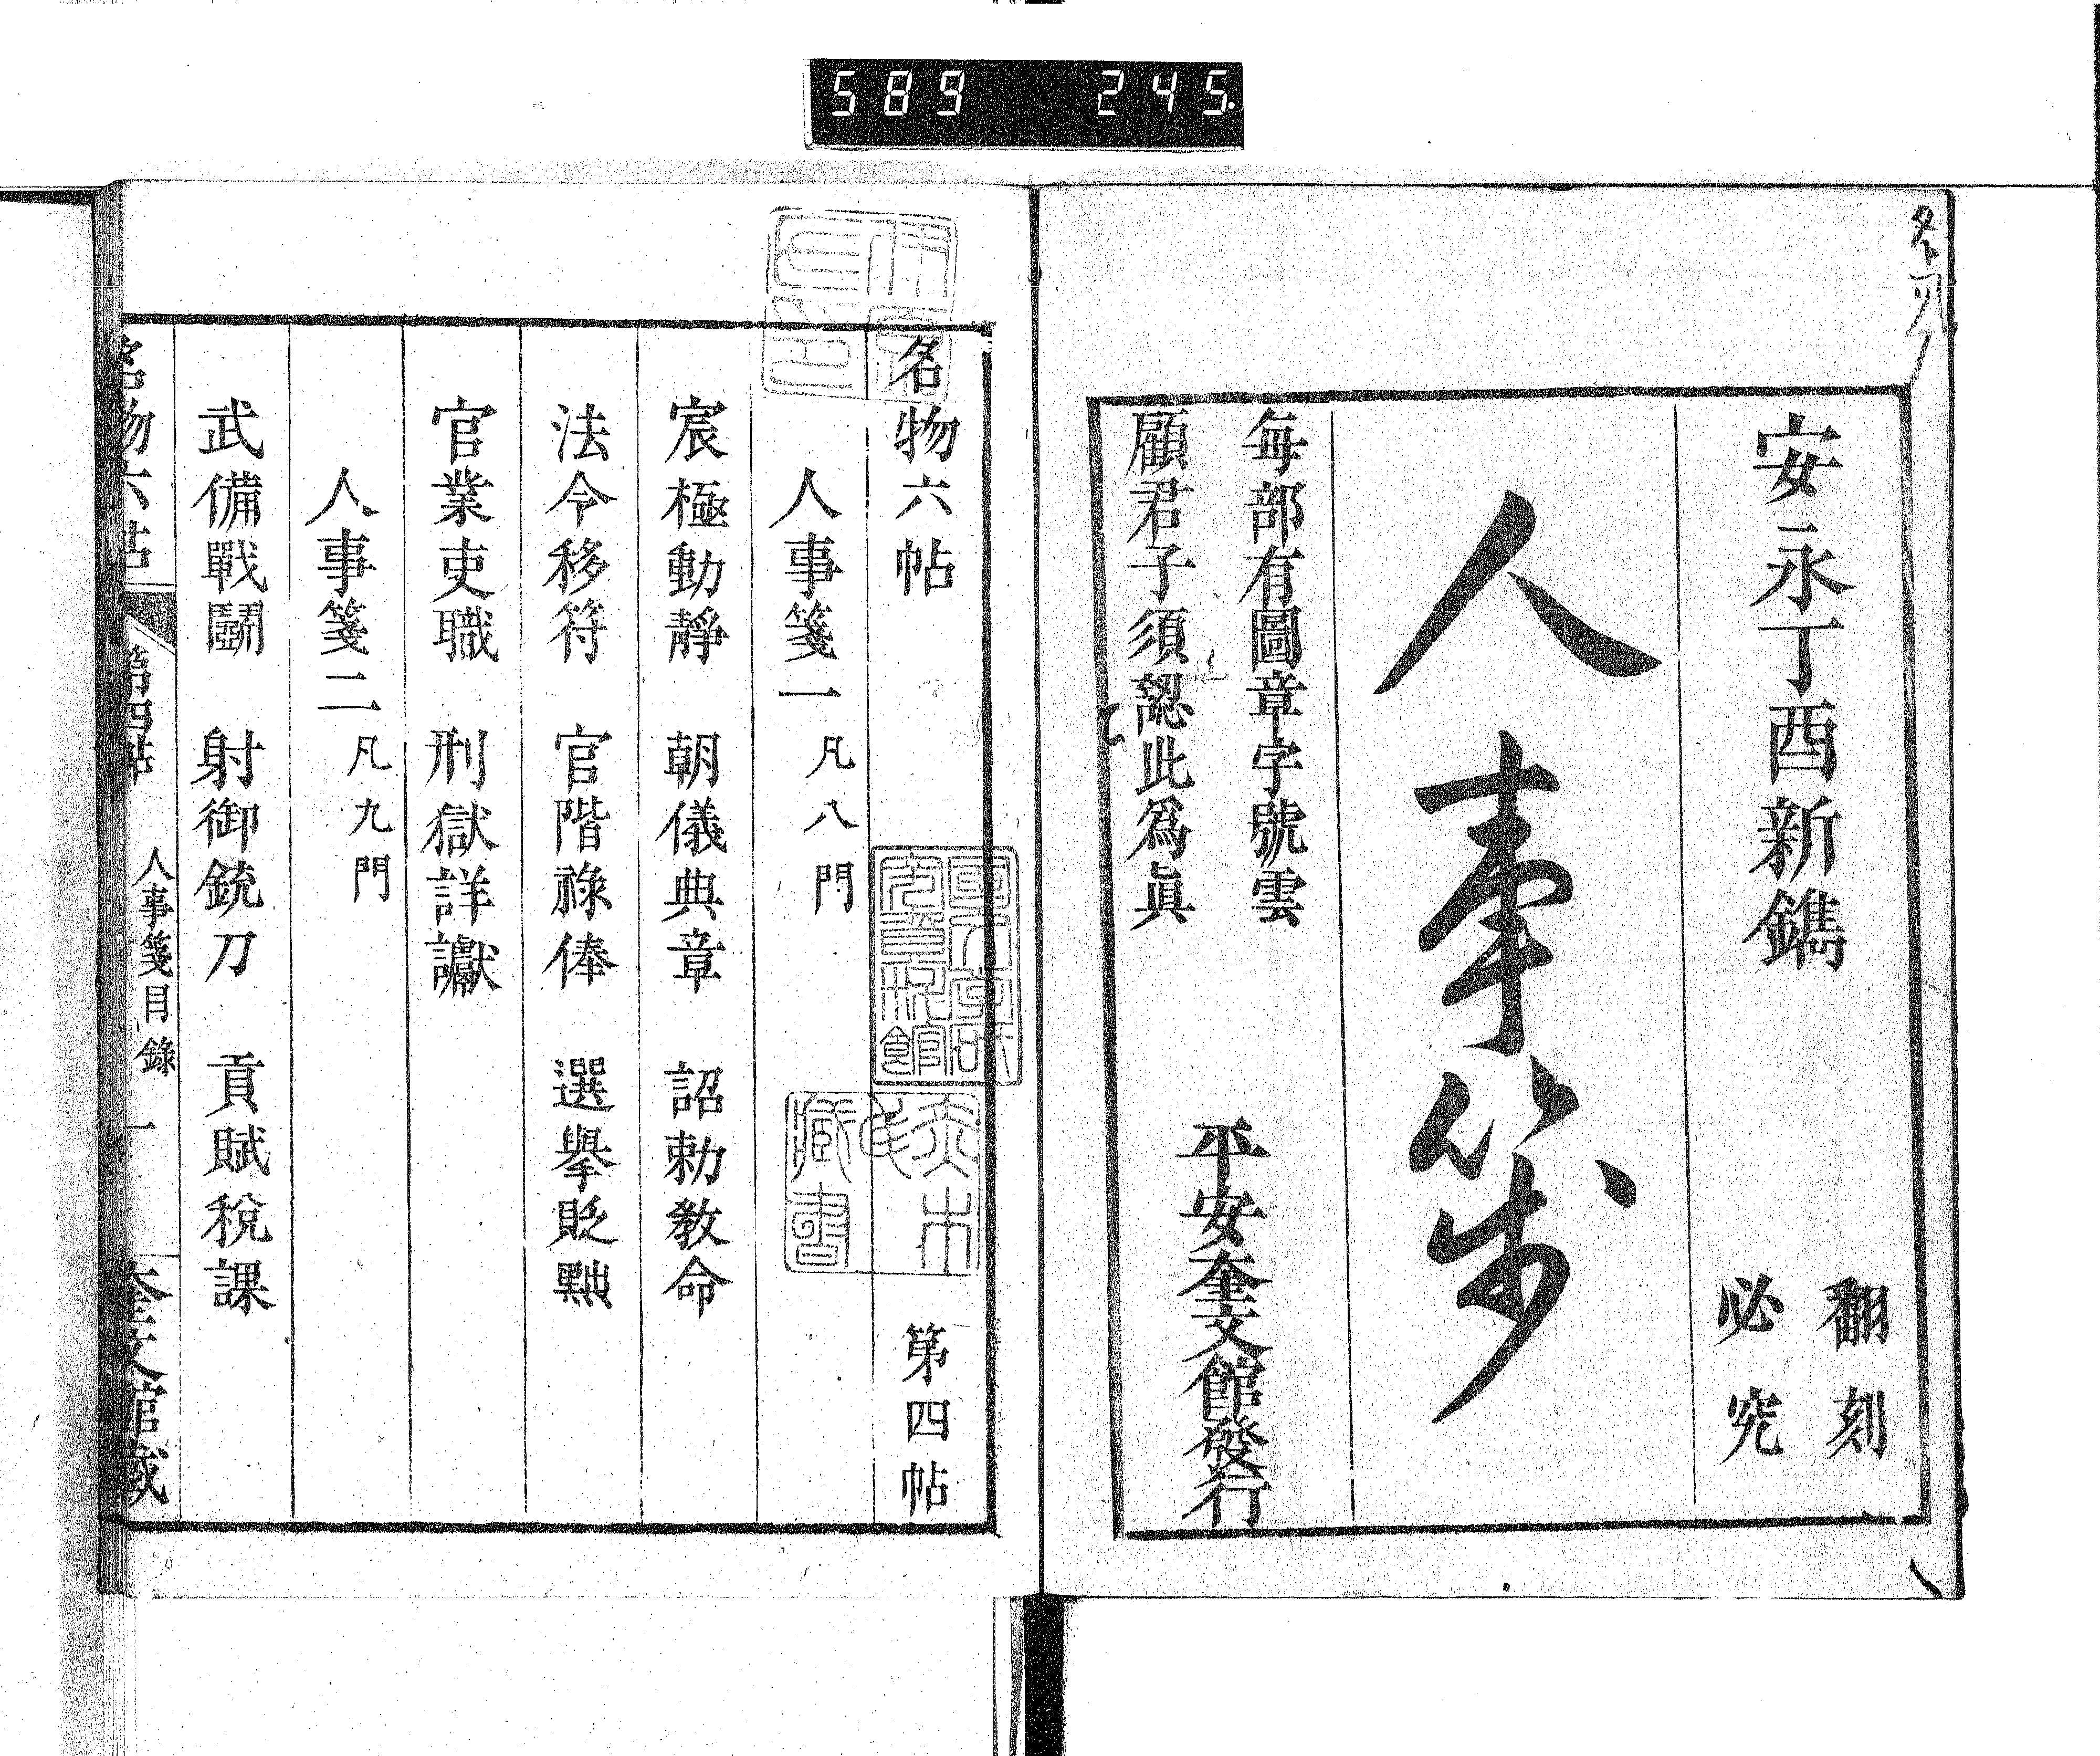 589 245.
安永丁酉新鐫
翻刻
必究
人事箋
每部有圖章字號雲
顧君子須認此爲眞
平安奎文館發行
名物六帖 第四帖
人事箋一 凡八門
宸極動靜 朝儀典章 詔勅教命
法令移符 官階祿俸 選擧貶黜
官業吏職 刑獄詳讞
人事箋二 凡九門
武備戰鬪 射御銃刀 貢賦稅課
名物六帖 第四帖 人事箋目錄 一 奎文館藏
藏書